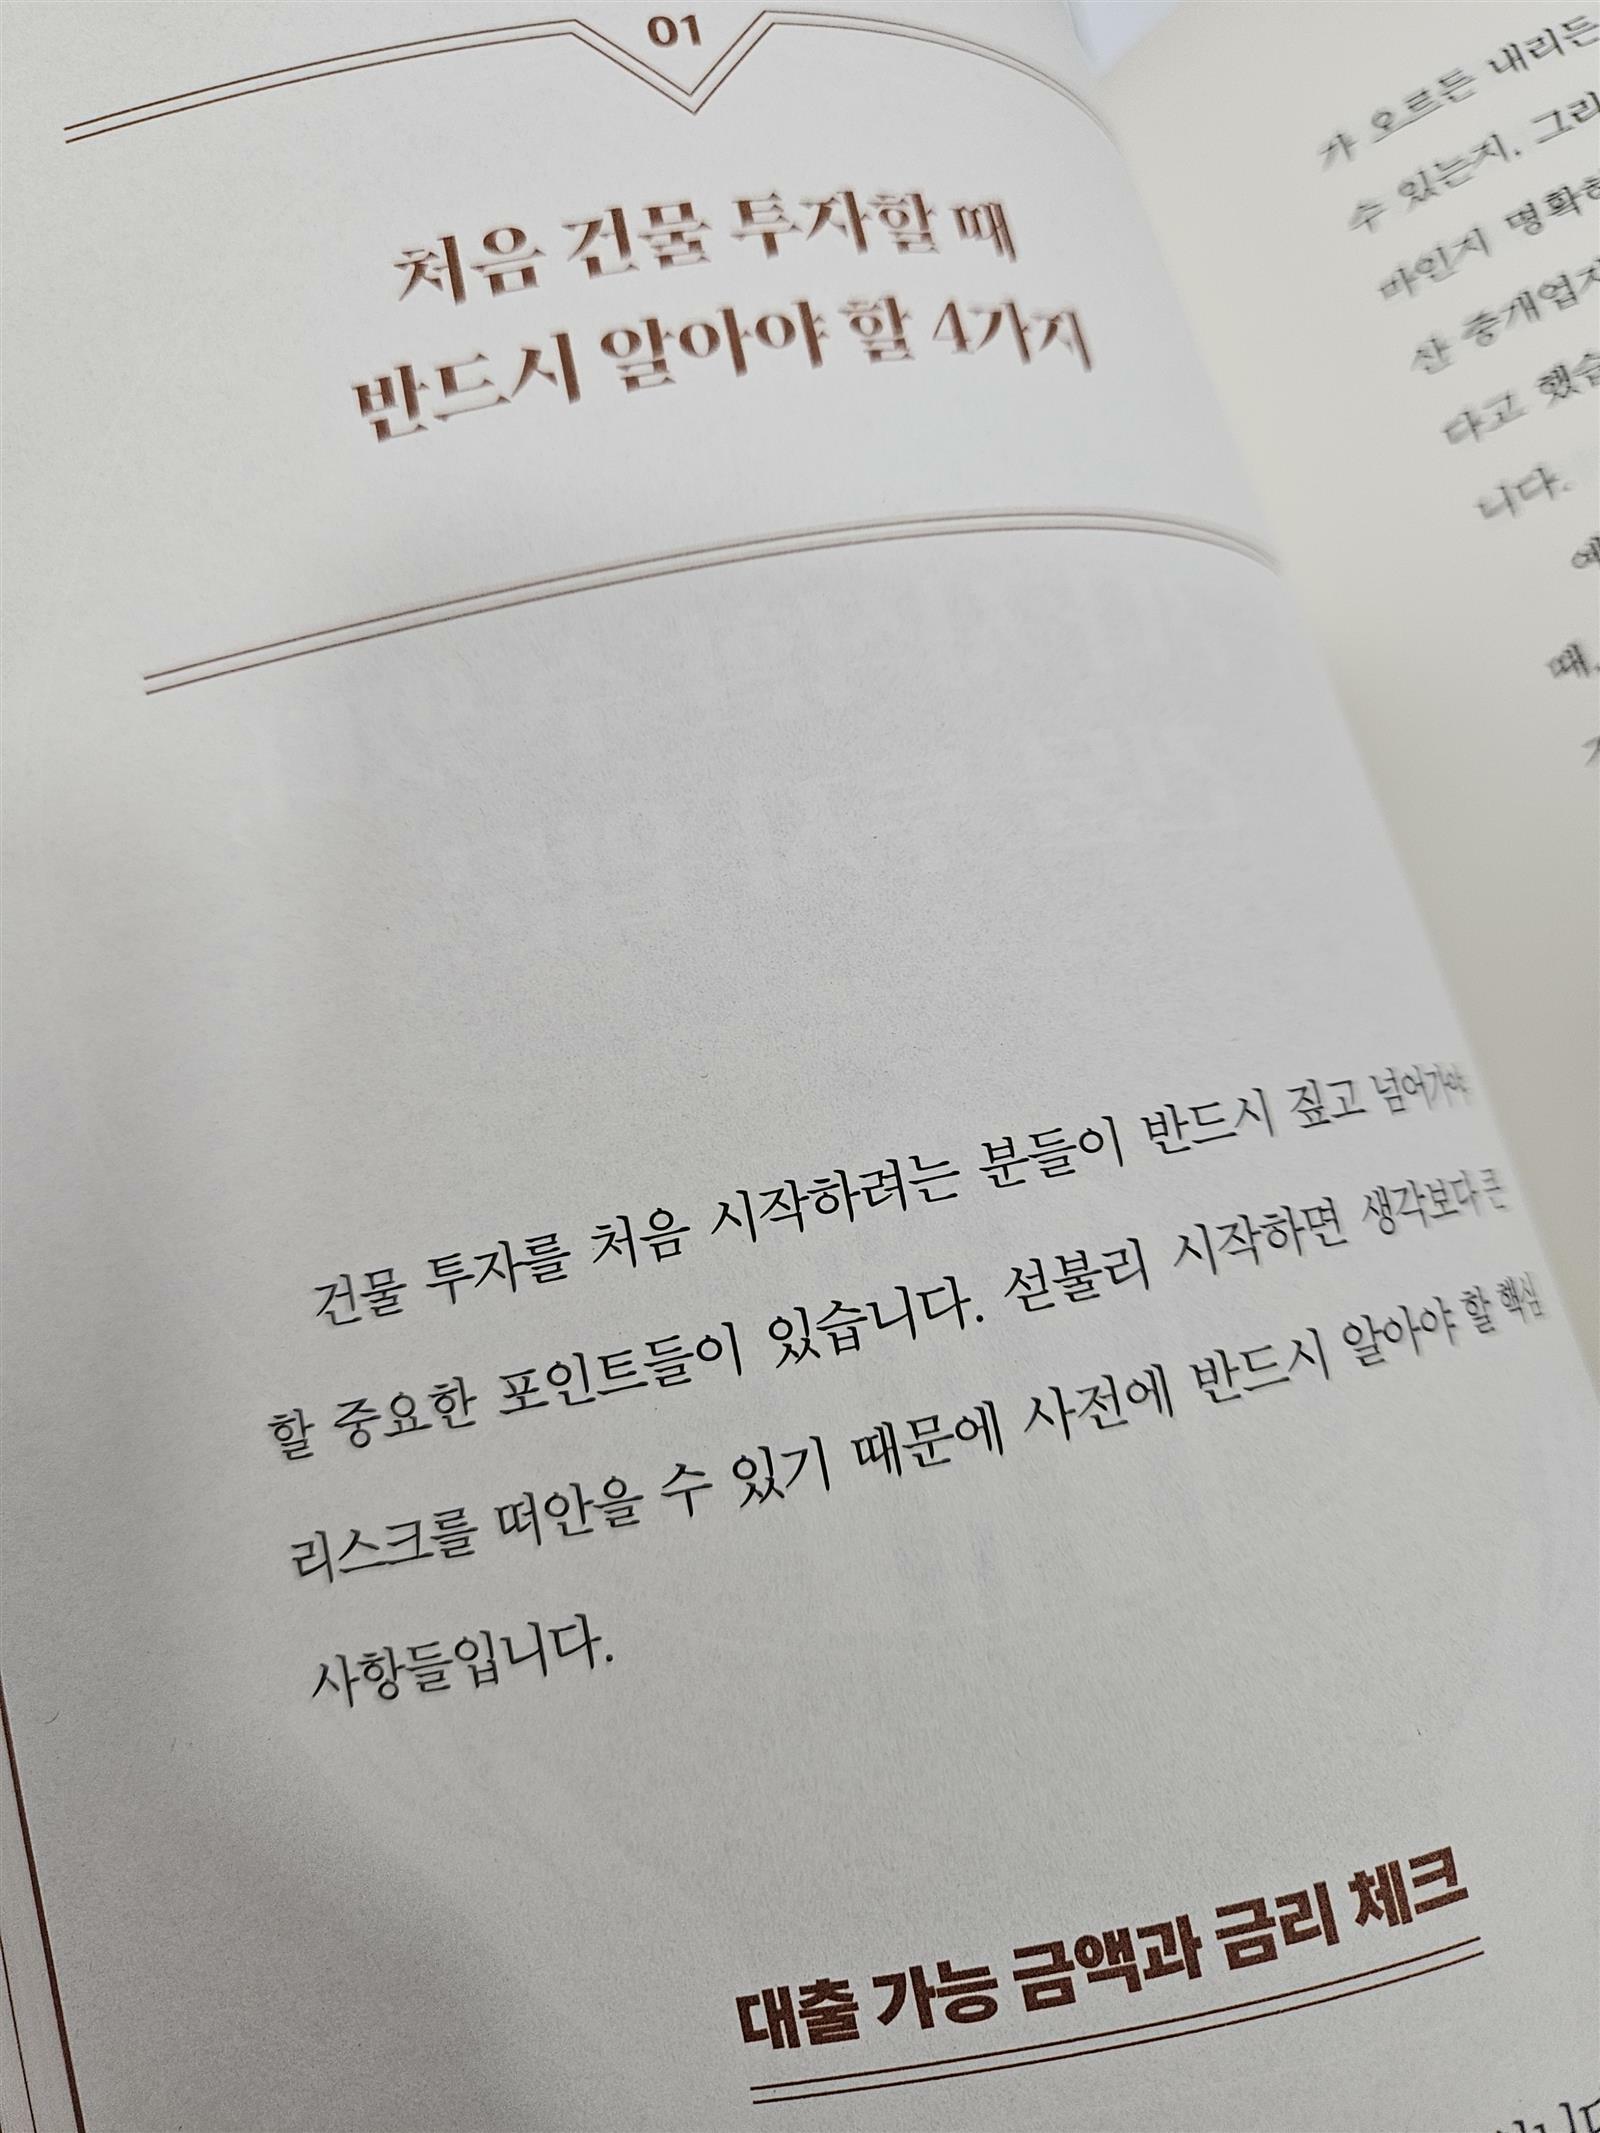 01
처음 건물 투자할 때
반드시 알아야 할 4가지
건물 투자를 처음 시작하려는 분들이 반드시 짚고 넘어가야
할 중요한 포인트들이 있습니다. 섣불리 시작하면 생각보다 큰
리스크를 떠안을 수 있기 때문에 사전에 반드시 알아야 할 핵심
사항들입니다.
대출 가능 금액과 금리 체크
가 오르든 내리든
수 있는지, 그리
마인지 명확하
산 중개업자
다고 했습
니다.
때,